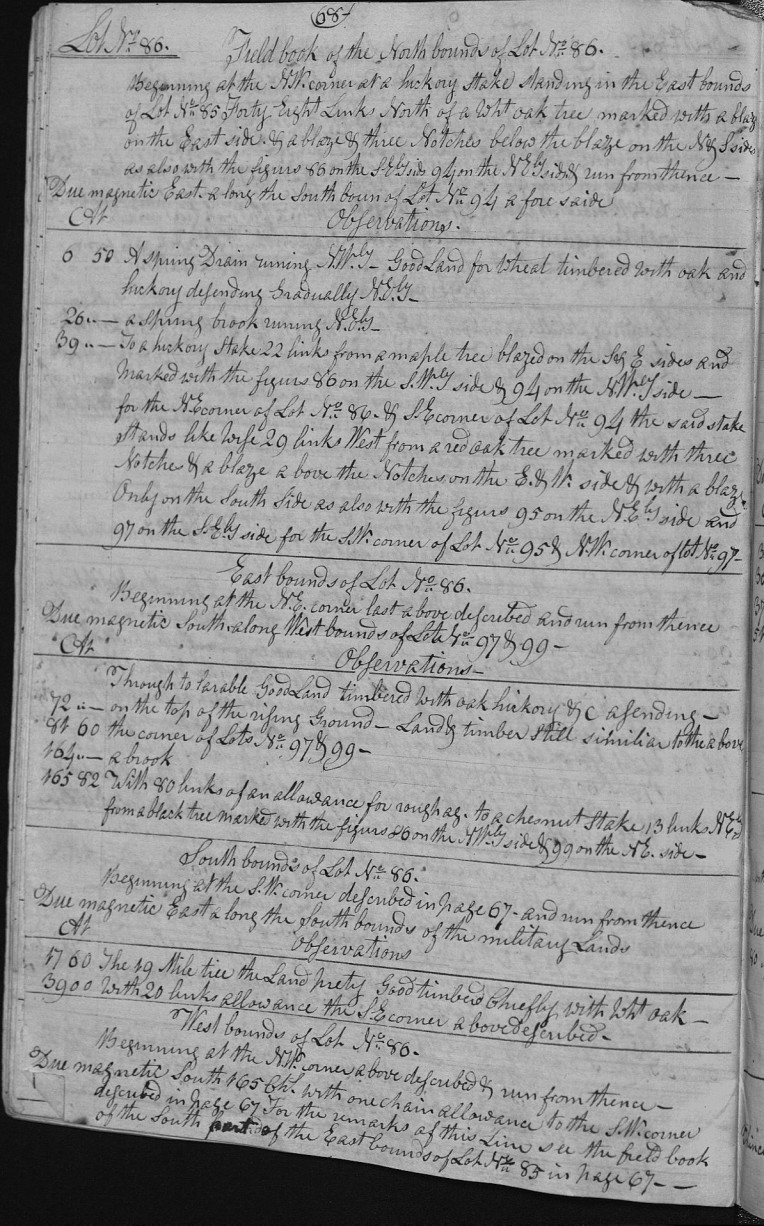 68
Lot No. 86. Field book of the North bounds of Lot No. 86.
Beginning at the N.W. corner at a hickory Stake Standing in the East bounds
of Lot No. 85 Forty Eight Links North of a Wht oak tree marked with a blaze
on the East side & a blaze & three Notches below the blaze on the N & S sides
as also with the figurs 86 on the S.Ely side 94 on the N.Ely side & run from thence —
Due magnetic East a long the South boun of Lot No. 94 a fore saide
At Observations.
6 50 A spring Drain runing N.Wly — Good Land for Wheat timbered with oak and
hickory desending Gradually N.Ely —
26 " — a Spring brook runing N.Ely —
39 " — To a hickory Stake 22 links from a maple tree blazed on the S & E sides and
Marked with the figurs 86 on the S.Wly side & 94 on the N.Wly side —
for the N.E corner of Lot No. 86. & S.E corner of Lot No. 94 the said stake
stands like Wise 29 links West from a red oak tree marked with three
Notches & a blaze a bove the Notches on the E. & W. side & with a blaze
Only on the South Side as also with the figurs 95 on the N.Ely side and
97 on the S.Ely side for the S.W. corner of Lot No. 95 & N.W. corner of lot No. 97 —
East bounds of Lot No. 86.
Beginning at the N.E. corner last above described and run from thence
Due magnetic South along West bounds of Lots No. 97 & 99 —
At Observations —
Through tolarable Good Land timbered with oak hickory &c asending —
72 " — on the top of the rising Ground — Land & timber Still similiar to the above
81 60 the corner of Lots No. 97 & 99 —
164 " — a brook
165 82 With 80 links of an allowance for rough ag. to a chesnut Stake 13 links N.Ely
from a black tree marked with the figurs 86 on the N.Wly side & 99 on the N.E. side —
South bounds of Lot No. 86.
Beginning at the S.W. corner described in page 67 — and run from thence
Due magnetic East a long the South bounds of the military Lands
At Observations
17 60 The 19 Mile tree the Land prety Good timberd Chiefly with Wht oak —
39 00 With 20 links allowance the S.E corner a bove described —
West bounds of Lot No. 86.
Beginning at the N.W. corner above described & run from thence —
Due magnetic South 165 Chs. with one chain allowance to the S.W. corner
described in page 67 For the remarks of this Line see the field book
of the South part of the East bounds of Lot No. 85 in page 67 —